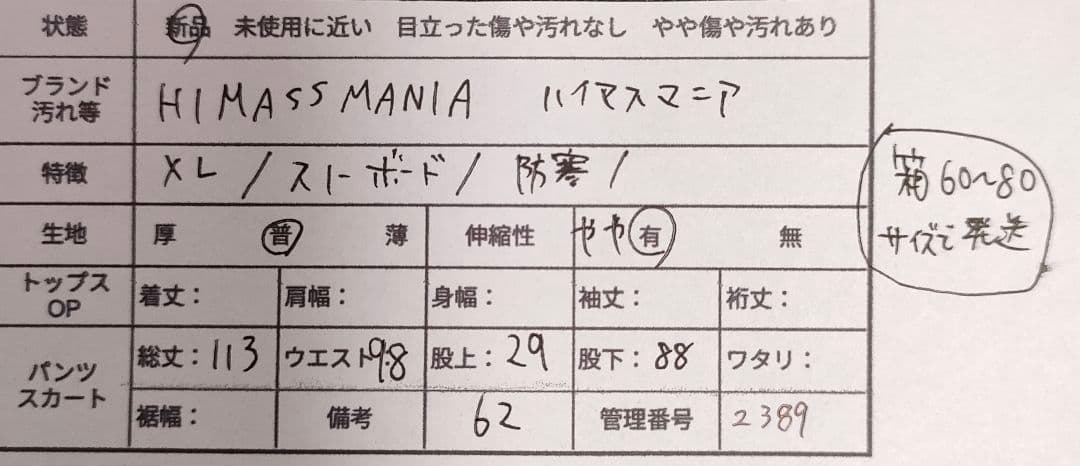 状態 新品 未使用に近い 目立った傷や汚れなし やや傷や汚れあり
ブランド
汚れ等
HIMASS MANIA ハイマスマニア
特徴 XL / スノーボード / 防寒 /
箱60~80
サイズで発送
生地 厚 普 薄 伸縮性 やや 有 無
トップス
OP
着丈: 肩幅: 身幅: 袖丈: 裄丈:
パンツ
スカート
総丈:113 ウエスト98 股上:29 股下:88 ワタリ:
裾幅: 備考 62 管理番号 2389